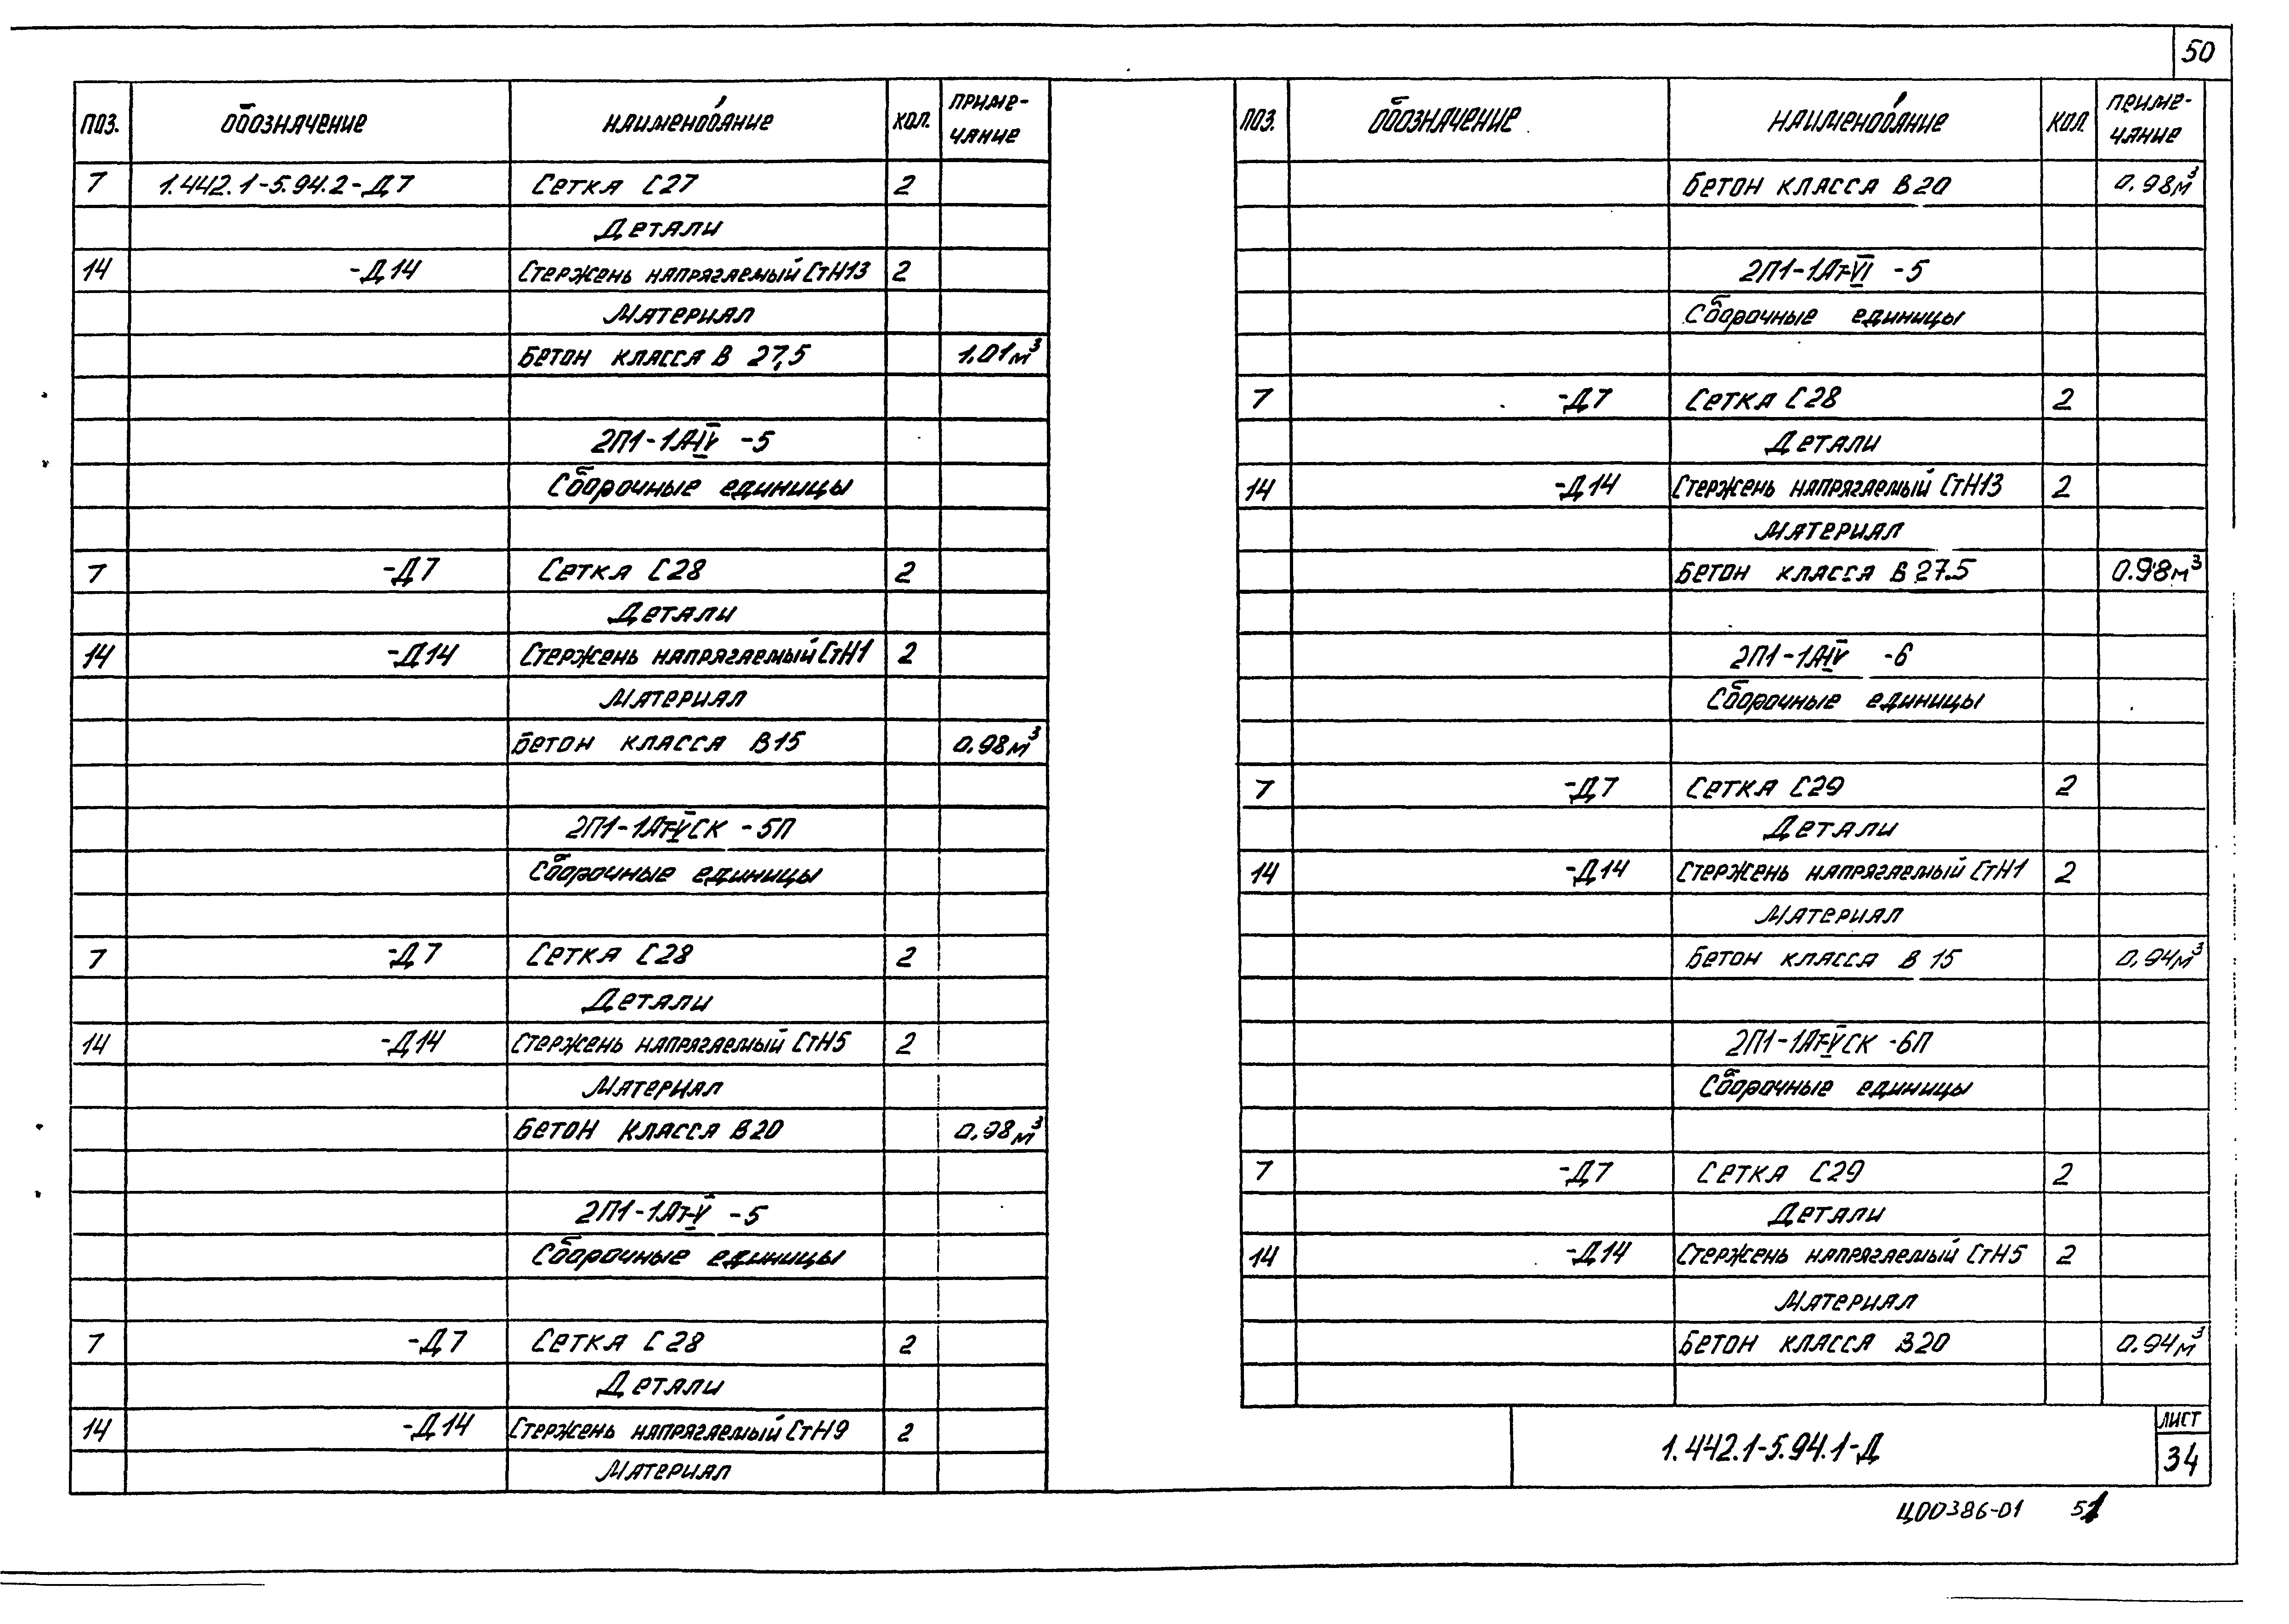 50
ПОЗ. ОБОЗНАЧЕНИЕ НАИМЕНОВАНИЕ КОЛ. ПРИМЕ-
ЧАНИЕ
7 1.442.1-5.94.2-Д7 Сетка С27 2
Детали
14 -Д14 Стержень напрягаемый СтН13 2
Материал
Бетон класса В 27,5 1.01м³
2П1-1АIV -5
Сборочные единицы
7 -Д7 Сетка С28 2
Детали
14 -Д14 Стержень напрягаемый СтН1 2
Материал
Бетон класса В15 0.98м³
2П1-1Ат-VСК -5П
Сборочные единицы
7 -Д7 Сетка С28 2
Детали
14 -Д14 Стержень напрягаемый СтН5 2
Материал
Бетон класса В20 0.98м³
2П1-1Ат-V -5
Сборочные единицы
7 -Д7 Сетка С28 2
Детали
14 -Д14 Стержень напрягаемый СтН9 2
Материал
ПОЗ. ОБОЗНАЧЕНИЕ НАИМЕНОВАНИЕ КОЛ. ПРИМЕ-
ЧАНИЕ
Бетон класса В20 0.98м³
2П1-1Ат-VI -5
Сборочные единицы
7 -Д7 Сетка С28 2
Детали
14 -Д14 Стержень напрягаемый СтН13 2
Материал
Бетон класса В 27.5 0.98м³
2П1-1АIV -6
Сборочные единицы
7 -Д7 Сетка С29 2
Детали
14 -Д14 Стержень напрягаемый СтН1 2
Материал
Бетон класса В 15 0,94м³
2П1-1Ат-VСК -6П
Сборочные единицы
7 -Д7 Сетка С29 2
Детали
14 -Д14 Стержень напрягаемый СтН5 2
Материал
Бетон класса В20 0.94м³
1.442.1-5.94.1-Д
ЛИСТ
34
Ц00386-01 51